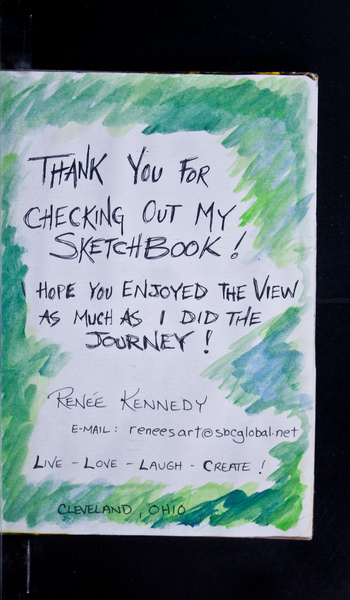 THANK YOU FOR
CHECKING OUT MY
SKETCHBOOK!
I HOPE YOU ENJOYED THE VIEW
AS MUCH AS I DID THE
JOURNEY!
RENÉE KENNEDY
E-MAIL: reneesart@sbcglobal.net
LIVE - LOVE - LAUGH - CREATE!
CLEVELAND, OHIO